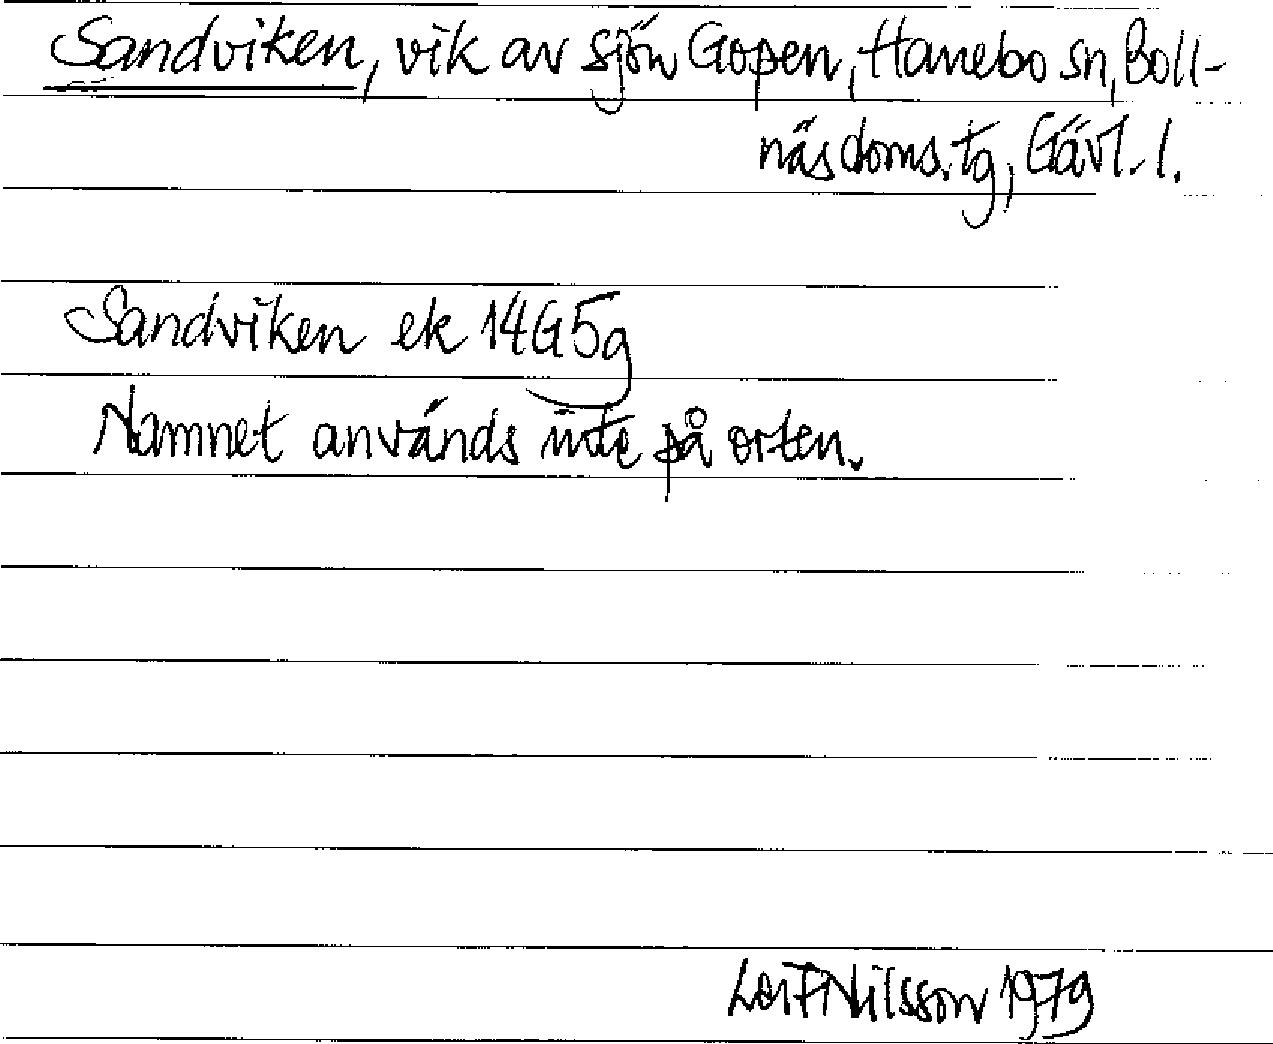 Sandviken, vik av sjön Gopen, Hanebo sn, Boll-
näs doms. tg, Gävl. l.
Sandviken ek 14G5g
Namnet används inte på orten.
Leif Nilsson 1979